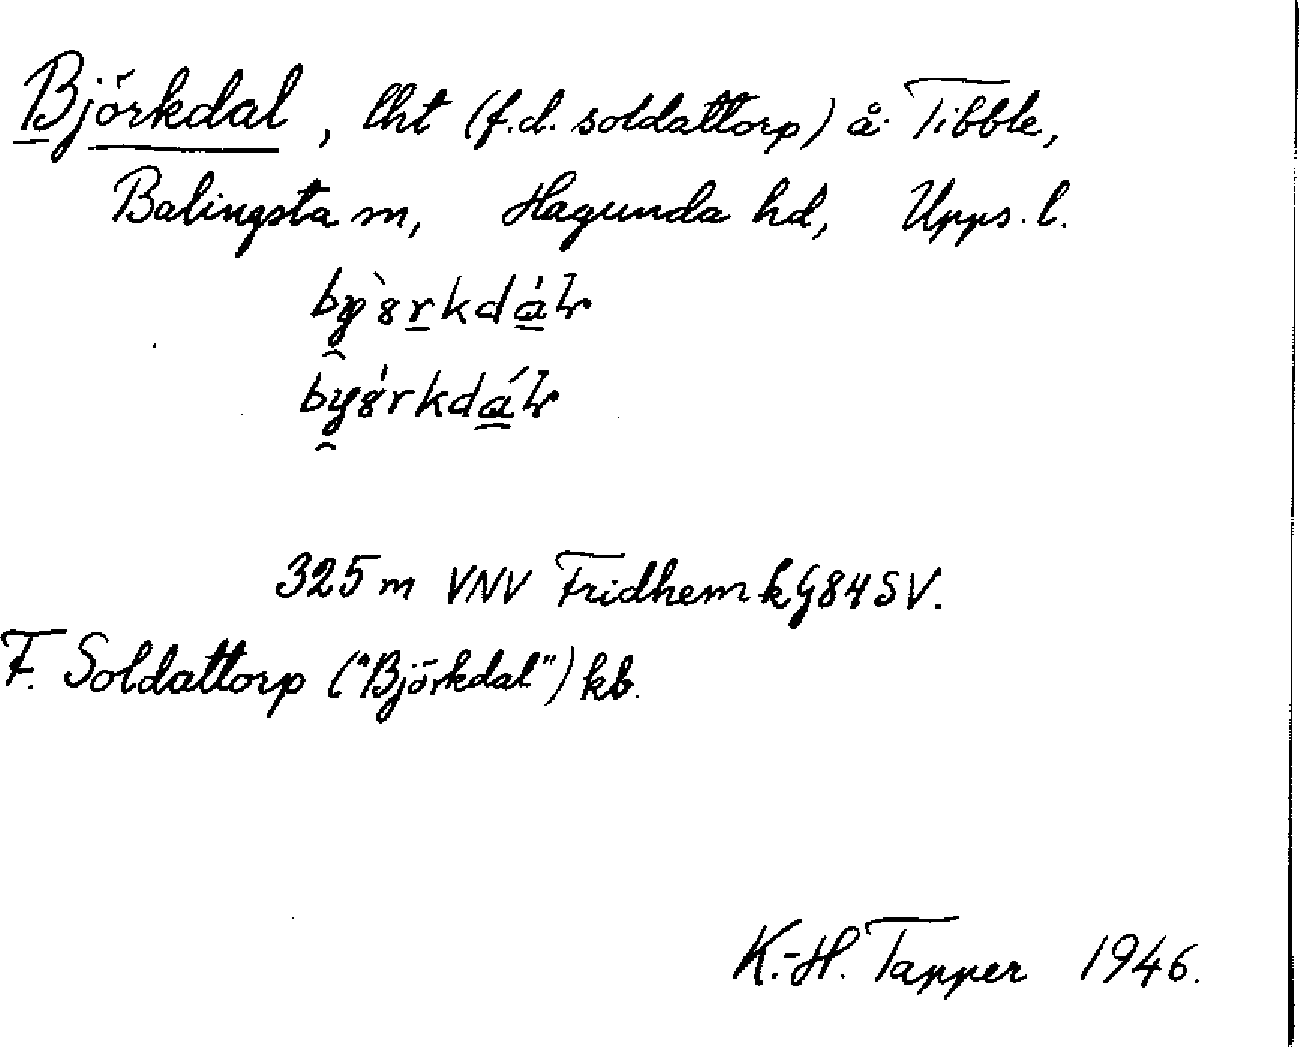 Björkdal, lht (f.d. soldattorp) å Tibble,
Balingsta sn, Hagunda hd, Upps. l.
325 m VNV Fridhem k G84SV.
F. Soldattorp ("Björkdal") kb.
K.-H. Tapper 1946.